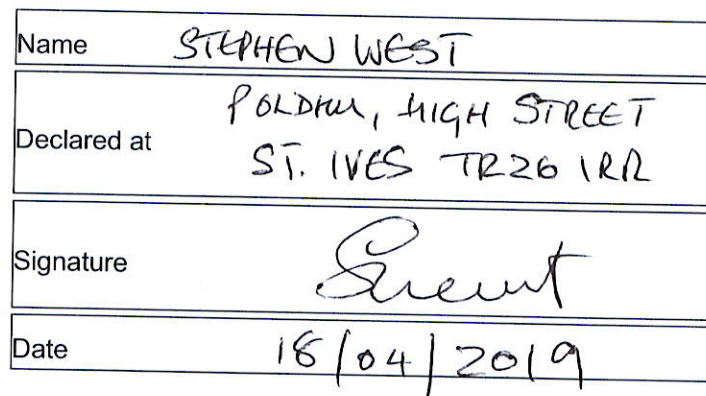 Name STEPHEN WEST
Declared at
POLDHU, HIGH STREET
ST. IVES TR26 1RR
Signature
Date 18/04/2019